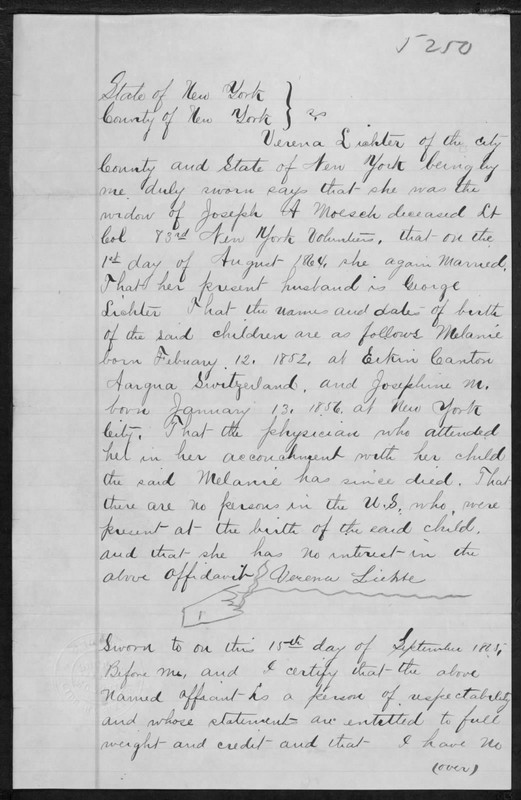 5250
State of New York
County of New York } ss
Verena Lichter of the city
County and State of New York being by
me duly sworn says that she was the
widow of Joseph A Moesch deceased Lt
Col 83rd New York Volunteers, that on the
1st day of August 1864, she again married.
That her present husband is George
Lichter That the names and dates of birth
of the said children are as follows Melanie
born Febuary 12, 1852, at Erkin Canton
Aargua Switzerland, and Josephine M.
born January 13, 1856 at New York
City. That the physician who attended
her in her accouchment with her child
the said Melanie has since died. That
there are no persons in the U.S. who were
present at the birth of the said child,
and that she has no interest in the
above affidavit Verena Lichte
Sworn to on this 15th day of September 1865,
Before me, and I certify that the above
named affiant is a person of respectability
and whose statement are entitled to full
weight and credit and that I have no
(over)